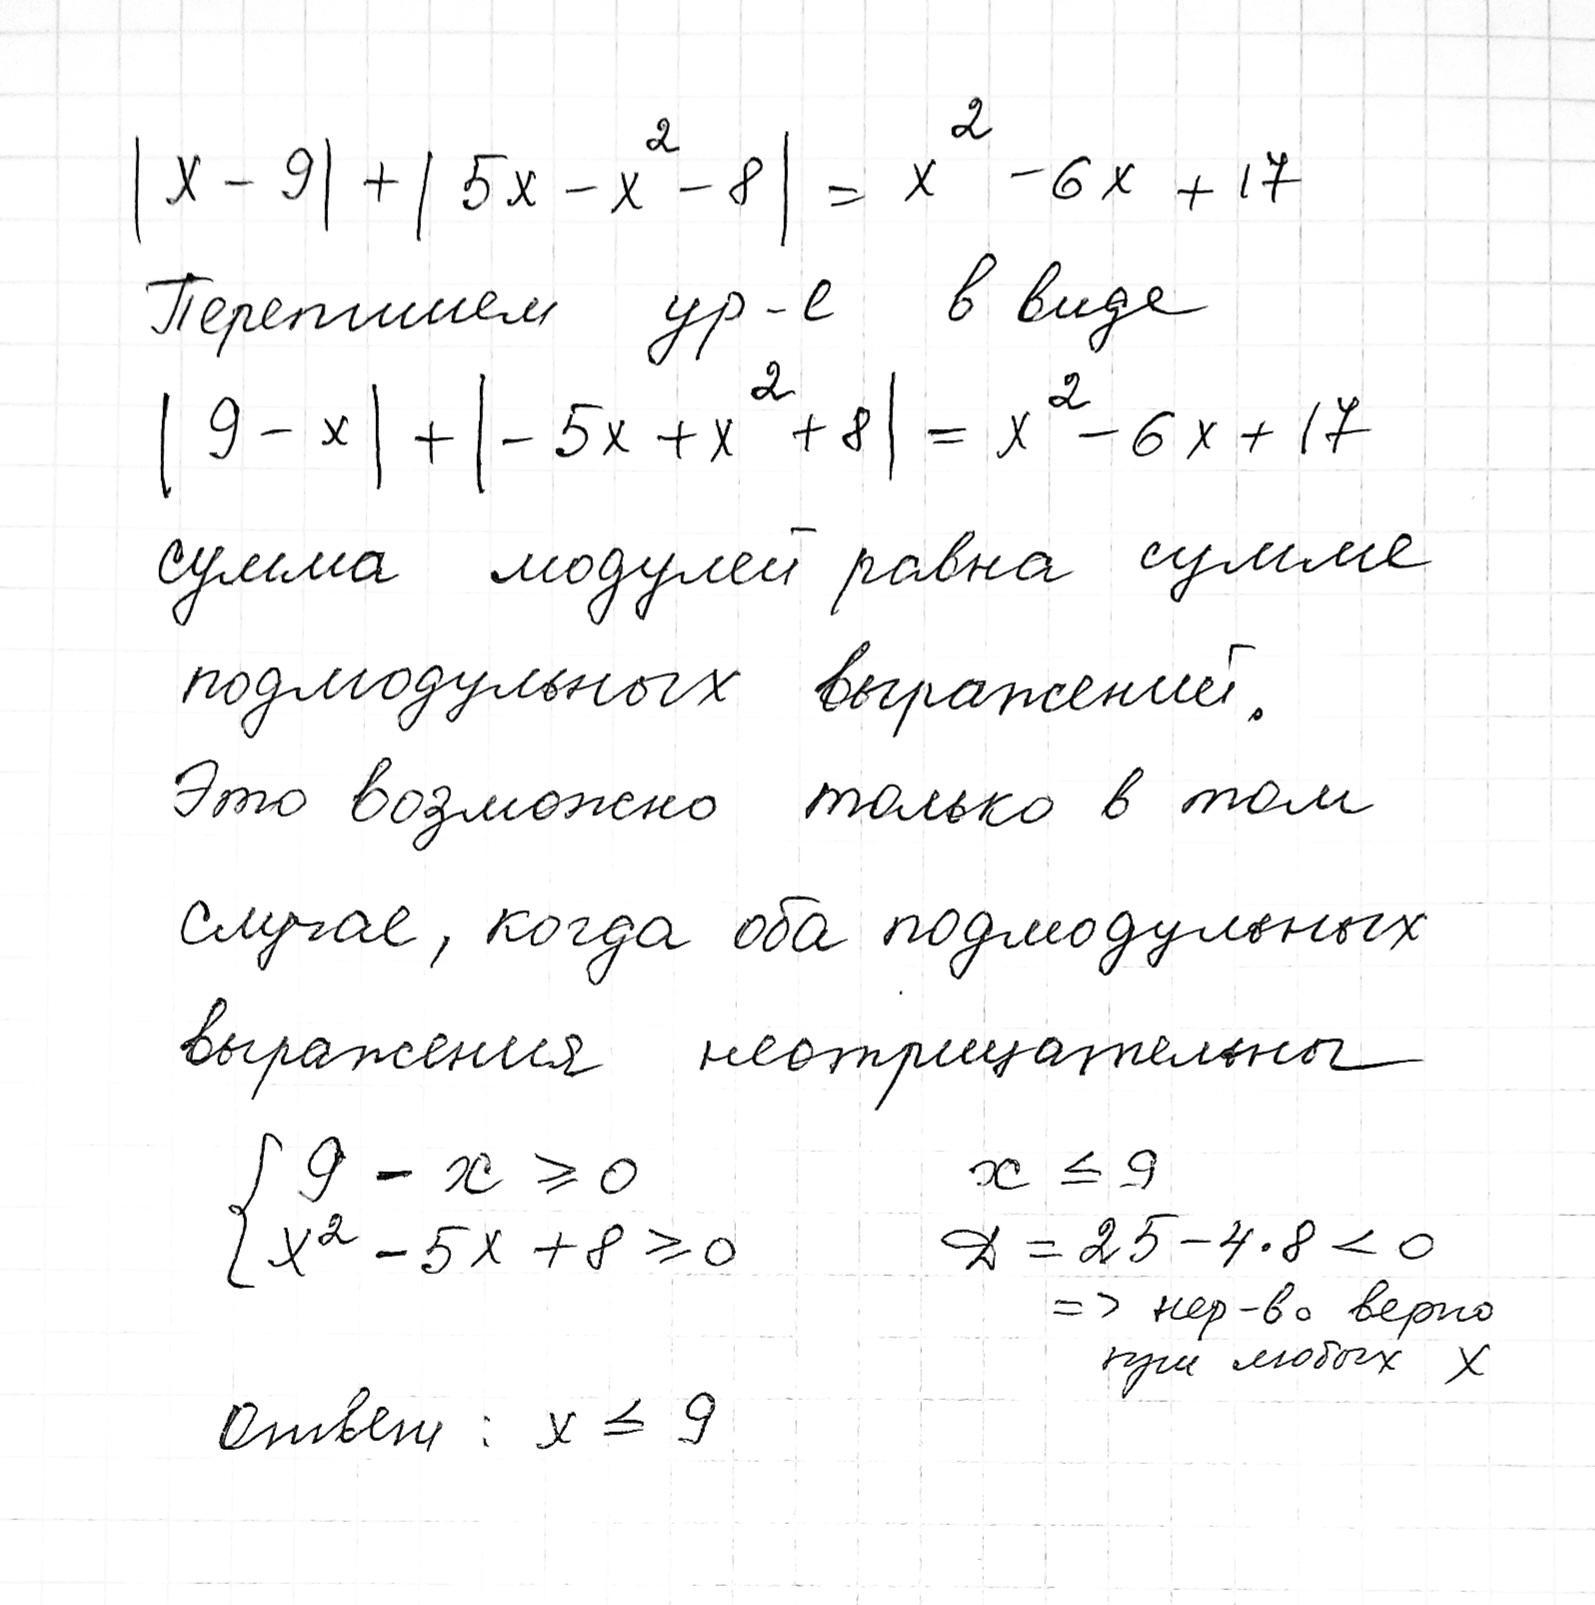 |x - 9| + |5x - x² - 8| = x² - 6x + 17
Перепишем ур-е в виде
|9 - x| + |-5x + x² + 8| = x² - 6x + 17
сумма модулей равна сумме
подмодульных выражений.
Это возможно только в том
случае, когда оба подмодульных
выражения неотрицательны
{ 9 - x ⩾ 0 x ≤ 9
x² - 5x + 8 ⩾ 0 Д = 25 - 4·8 < 0
=> нер-во верно
при любых x
Ответ: x ≤ 9